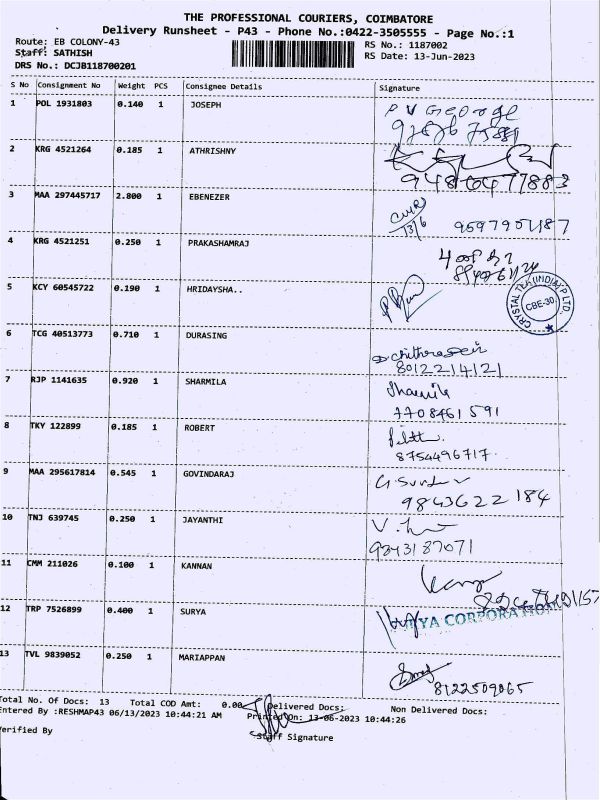 THE PROFESSIONAL COURIERS, COIMBATORE
Delivery Runsheet - P43 - Phone No.:0422-3505555 - Page No.:1
Route: EB COLONY-43 RS No.: 1187002
Staff: SATHISH RS Date: 13-Jun-2023
DRS No.: DCJB118700201
S No Consignment No Weight PCS Consignee Details Signature
1 POL 1931803 0.140 1 JOSEPH P V George
2 KRG 4521264 0.185 1 ATHRISHNY
9486477883
3 MAA 297445717 2.800 1 EBENEZER
13/6
4 KRG 4521251 0.250 1 PRAKASHAMRAJ
5 KCY 60545722 0.190 1 HRIDAYSHA..
CRYSTAL (INDIA) P LTD. CBE-30
6 TCG 40513773 0.710 1 DURASING
8012214121
7 RJP 1141635 0.920 1 SHARMILA Sharmila
7708461591
8 TKY 122899 0.185 1 ROBERT
8754496717
9 MAA 295617814 0.545 1 GOVINDARAJ
9843622184
10 TNJ 639745 0.250 1 JAYANTHI
9843187071
11 CMM 211026 0.100 1 KANNAN
12 TRP 7526899 0.400 1 SURYA YA CORPORATION
13 TVL 9839052 0.250 1 MARIAPPAN
8122509065
Total No. Of Docs: 13 Total COD Amt: 0.00 Delivered Docs: Non Delivered Docs:
Entered By :RESHMAP43 06/13/2023 10:44:21 AM Printed On: 13-06-2023 10:44:26
Verified By Staff Signature